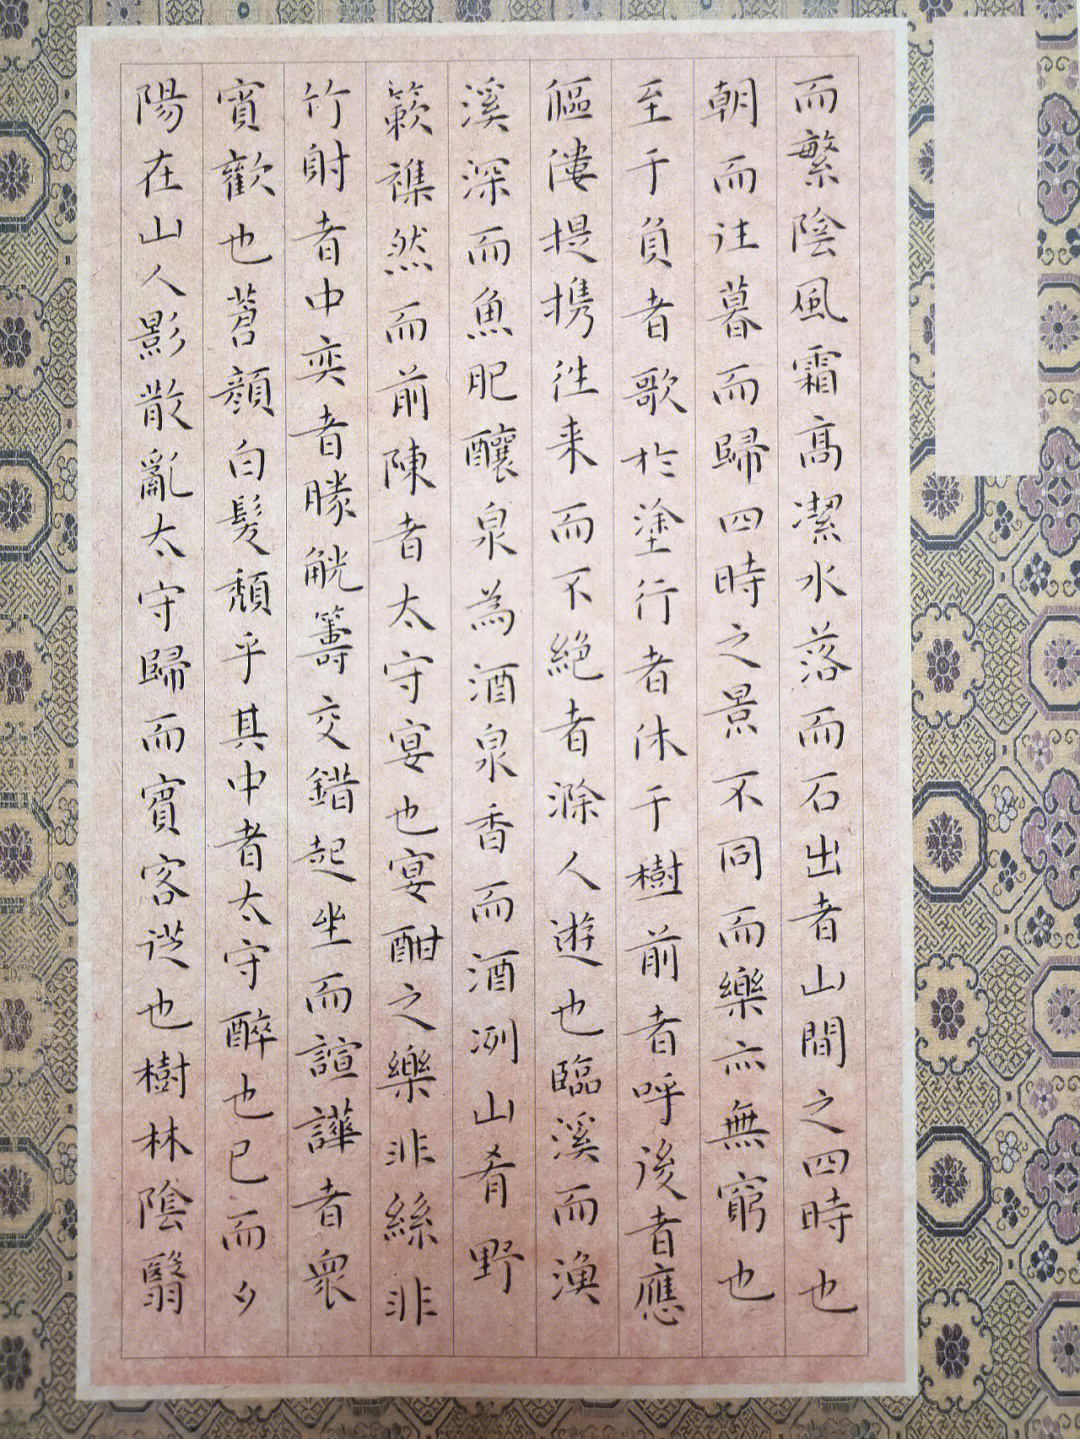 而繁陰風霜高潔水落而石出者山間之四時也
朝而往暮而歸四時之景不同而樂亦無窮也
至于負者歌於塗行者休于樹前者呼後者應
傴僂提携往来而不絕者滁人遊也臨溪而漁
溪深而魚肥釀泉為酒泉香而酒冽山肴野
簌襍然而前陳者太守宴也宴酣之樂非絲非
竹射者中奕者勝觥籌交錯起坐而諠譁者衆
賓歡也蒼顔白髮頹乎其中者太守醉也已而夕
陽在山人影散亂太守歸而賓客從也樹林陰翳